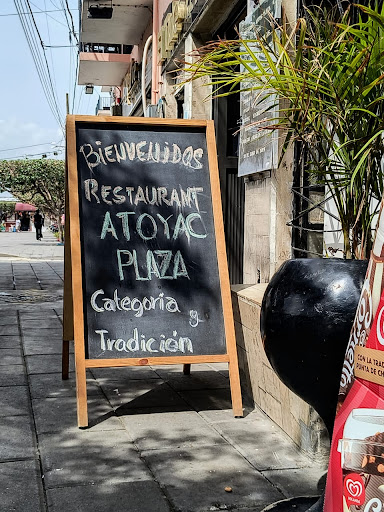 BIENVENIDOS
RESTAURANT
ATOYAC
PLAZA
Categoria y
Tradición
CON LA TRAD
PUNTA DE CH